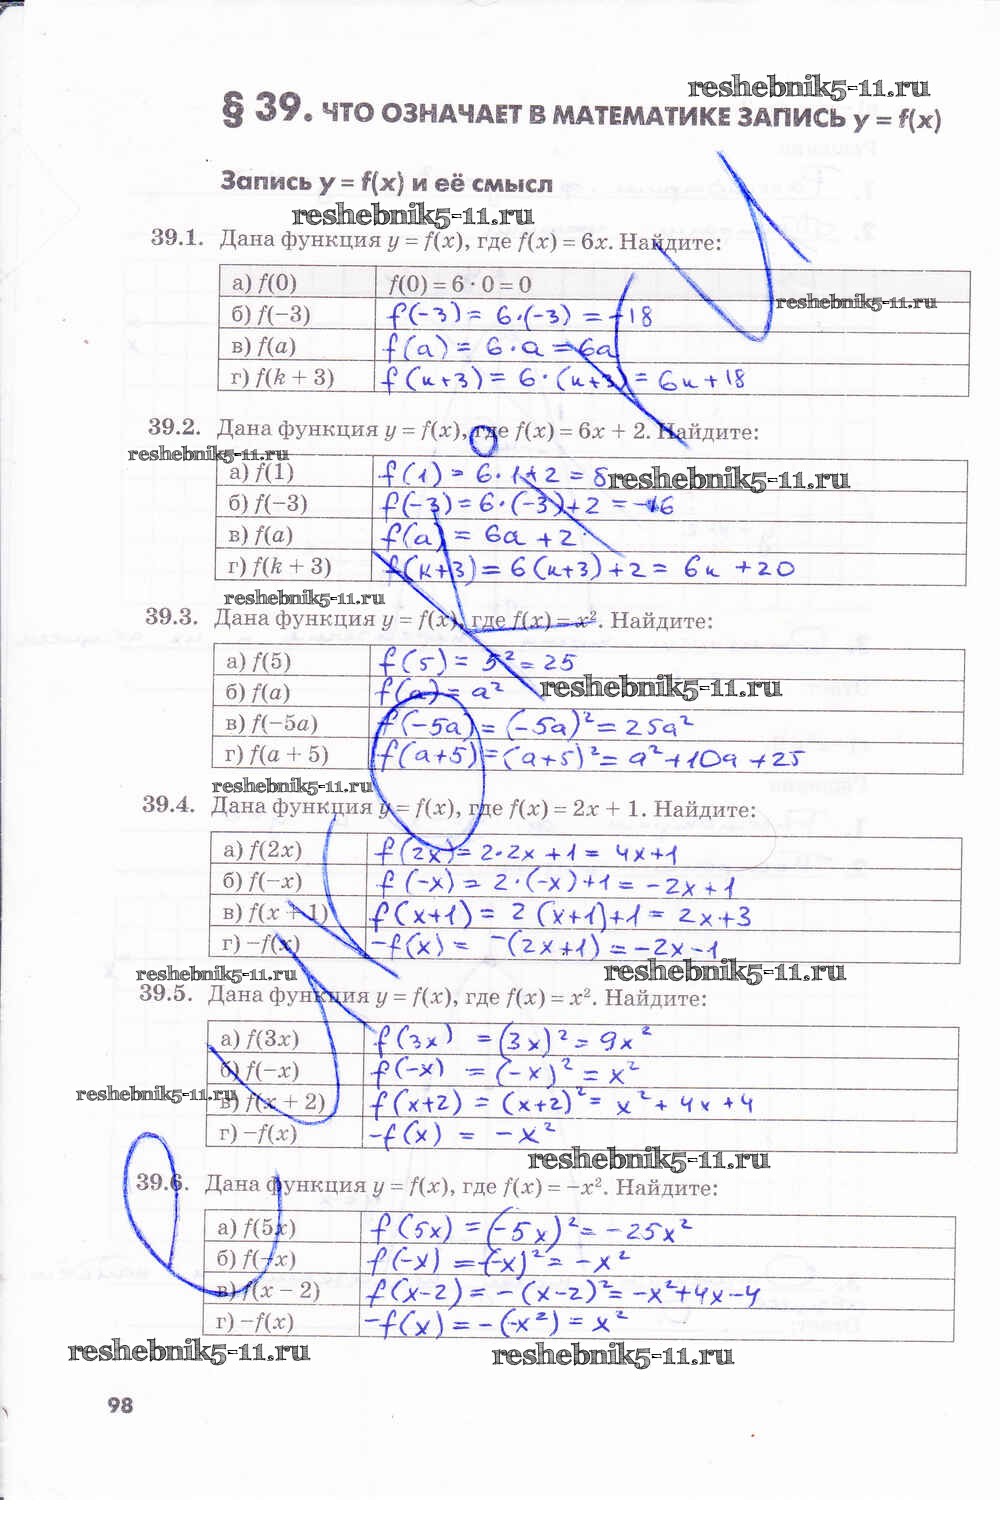 reshebnik5-11.ru
§ 39. ЧТО ОЗНАЧАЕТ В МАТЕМАТИКЕ ЗАПИСЬ y = f(x)
Запись y = f(x) и её смысл
reshebnik5-11.ru
39.1. Дана функция y = f(x), где f(x) = 6x. Найдите:
а) f(0) f(0) = 6 · 0 = 0
reshebnik5-11.ru
б) f(−3) f(-3) = 6·(-3) = -18
в) f(a) f(a) = 6·a = 6a
г) f(k + 3) f(k+3) = 6·(k+3) = 6k+18
39.2. Дана функция y = f(x), где f(x) = 6x + 2. Найдите:
reshebnik5-11.ru
а) f(1) f(1) = 6·1+2 = 8
reshebnik5-11.ru
б) f(−3) f(-3) = 6·(-3)+2 = -16
в) f(a) f(a) = 6a + 2
г) f(k + 3) f(k+3) = 6(k+3)+2 = 6k +20
reshebnik5-11.ru
39.3. Дана функция y = f(x), где f(x) = x². Найдите:
а) f(5) f(5) = 5² = 25
б) f(a) f(a) = a²
reshebnik5-11.ru
в) f(−5a) f(-5a) = (-5a)² = 25a²
г) f(a + 5) f(a+5) = (a+5)² = a²+10a+25
reshebnik5-11.ru
39.4. Дана функция y = f(x), где f(x) = 2x + 1. Найдите:
а) f(2x) f(2x) = 2·2x +1 = 4x+1
б) f(−x) f(-x) = 2·(-x)+1 = -2x+1
в) f(x + 1) f(x+1) = 2(x+1)+1 = 2x+3
г) −f(x) -f(x) = -(2x+1) = -2x-1
reshebnik5-11.ru reshebnik5-11.ru
39.5. Дана функция y = f(x), где f(x) = x². Найдите:
а) f(3x) f(3x) = (3x)² = 9x²
б) f(−x) f(-x) = (-x)² = x²
reshebnik5-11.ru
в) f(x + 2) f(x+2) = (x+2)² = x²+4x+4
г) −f(x) -f(x) = -x²
reshebnik5-11.ru
39.6. Дана функция y = f(x), где f(x) = −x². Найдите:
а) f(5x) f(5x) = (-5x)² = -25x²
б) f(−x) f(-x) = (-x)² = -x²
в) f(x − 2) f(x-2) = -(x-2)² = -x²+4x-4
г) −f(x) -f(x) = -(-x²) = x²
reshebnik5-11.ru reshebnik5-11.ru
98